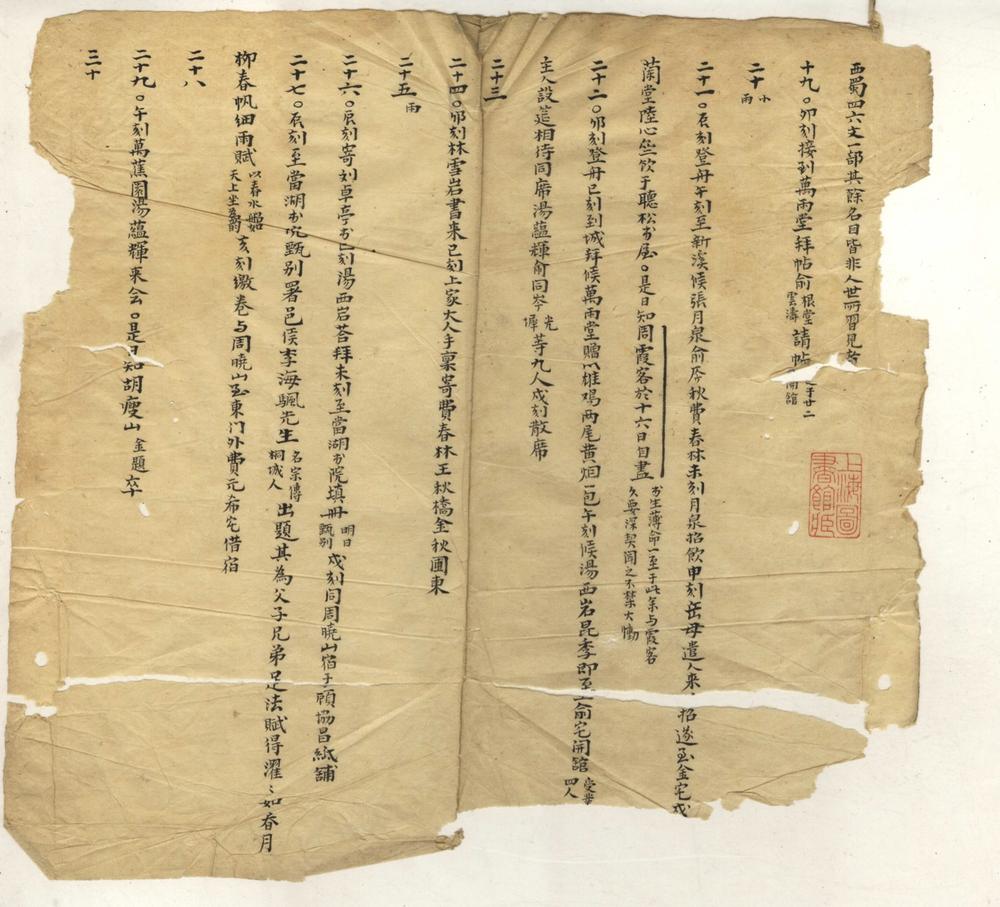 西蜀四六文一部其餘名目皆非人世所習見者
十九。卯刻接到萬雨堂拜帖俞根堂雲濤請帖于廿二開館
二十小雨
二十一。辰刻登舟午刻至新溪候張月泉俞岑秋費春林未刻月泉招飲申刻岳母遣人來招遂至金宅戌
蘭堂陸心竺飲于聽松書屋。是日知周霞客於十六日自盡書生薄命一至于此余与霞客久要深契聞之不禁大慟
二十二。卯刻登舟巳刻到城拜候萬雨堂贈以雄鴻兩尾黃烟一包午刻候湯西岩昆季即至俞宅開館受業四人
主人設筵相待同席湯蘊輝俞同岑光墀等九人戌刻散席
二十三
二十四。卯刻林雪岩書来巳刻上家大人手稟寄費春林王秋橋金秋圃東
二十五雨
二十六。辰刻寄刘卓亭書巳刻湯西岩荅拜未刻至當湖書院填册明日甄别戌刻同周曉山宿于顧協昌紙鋪
二十七。辰刻至當湖書院甄别署邑侯李海颿先生名宗傳桐城人出題其為父子兄弟足法賦得濯〻如春月
柳春帆細雨賦以春水船如天上坐為韵亥刻繳卷与周曉山至東门外費元希宅借宿
二十八
二十九。午刻萬蕉園湯蘊輝来会。是日知胡瘦山金題卒
三十
上海圖書館藏